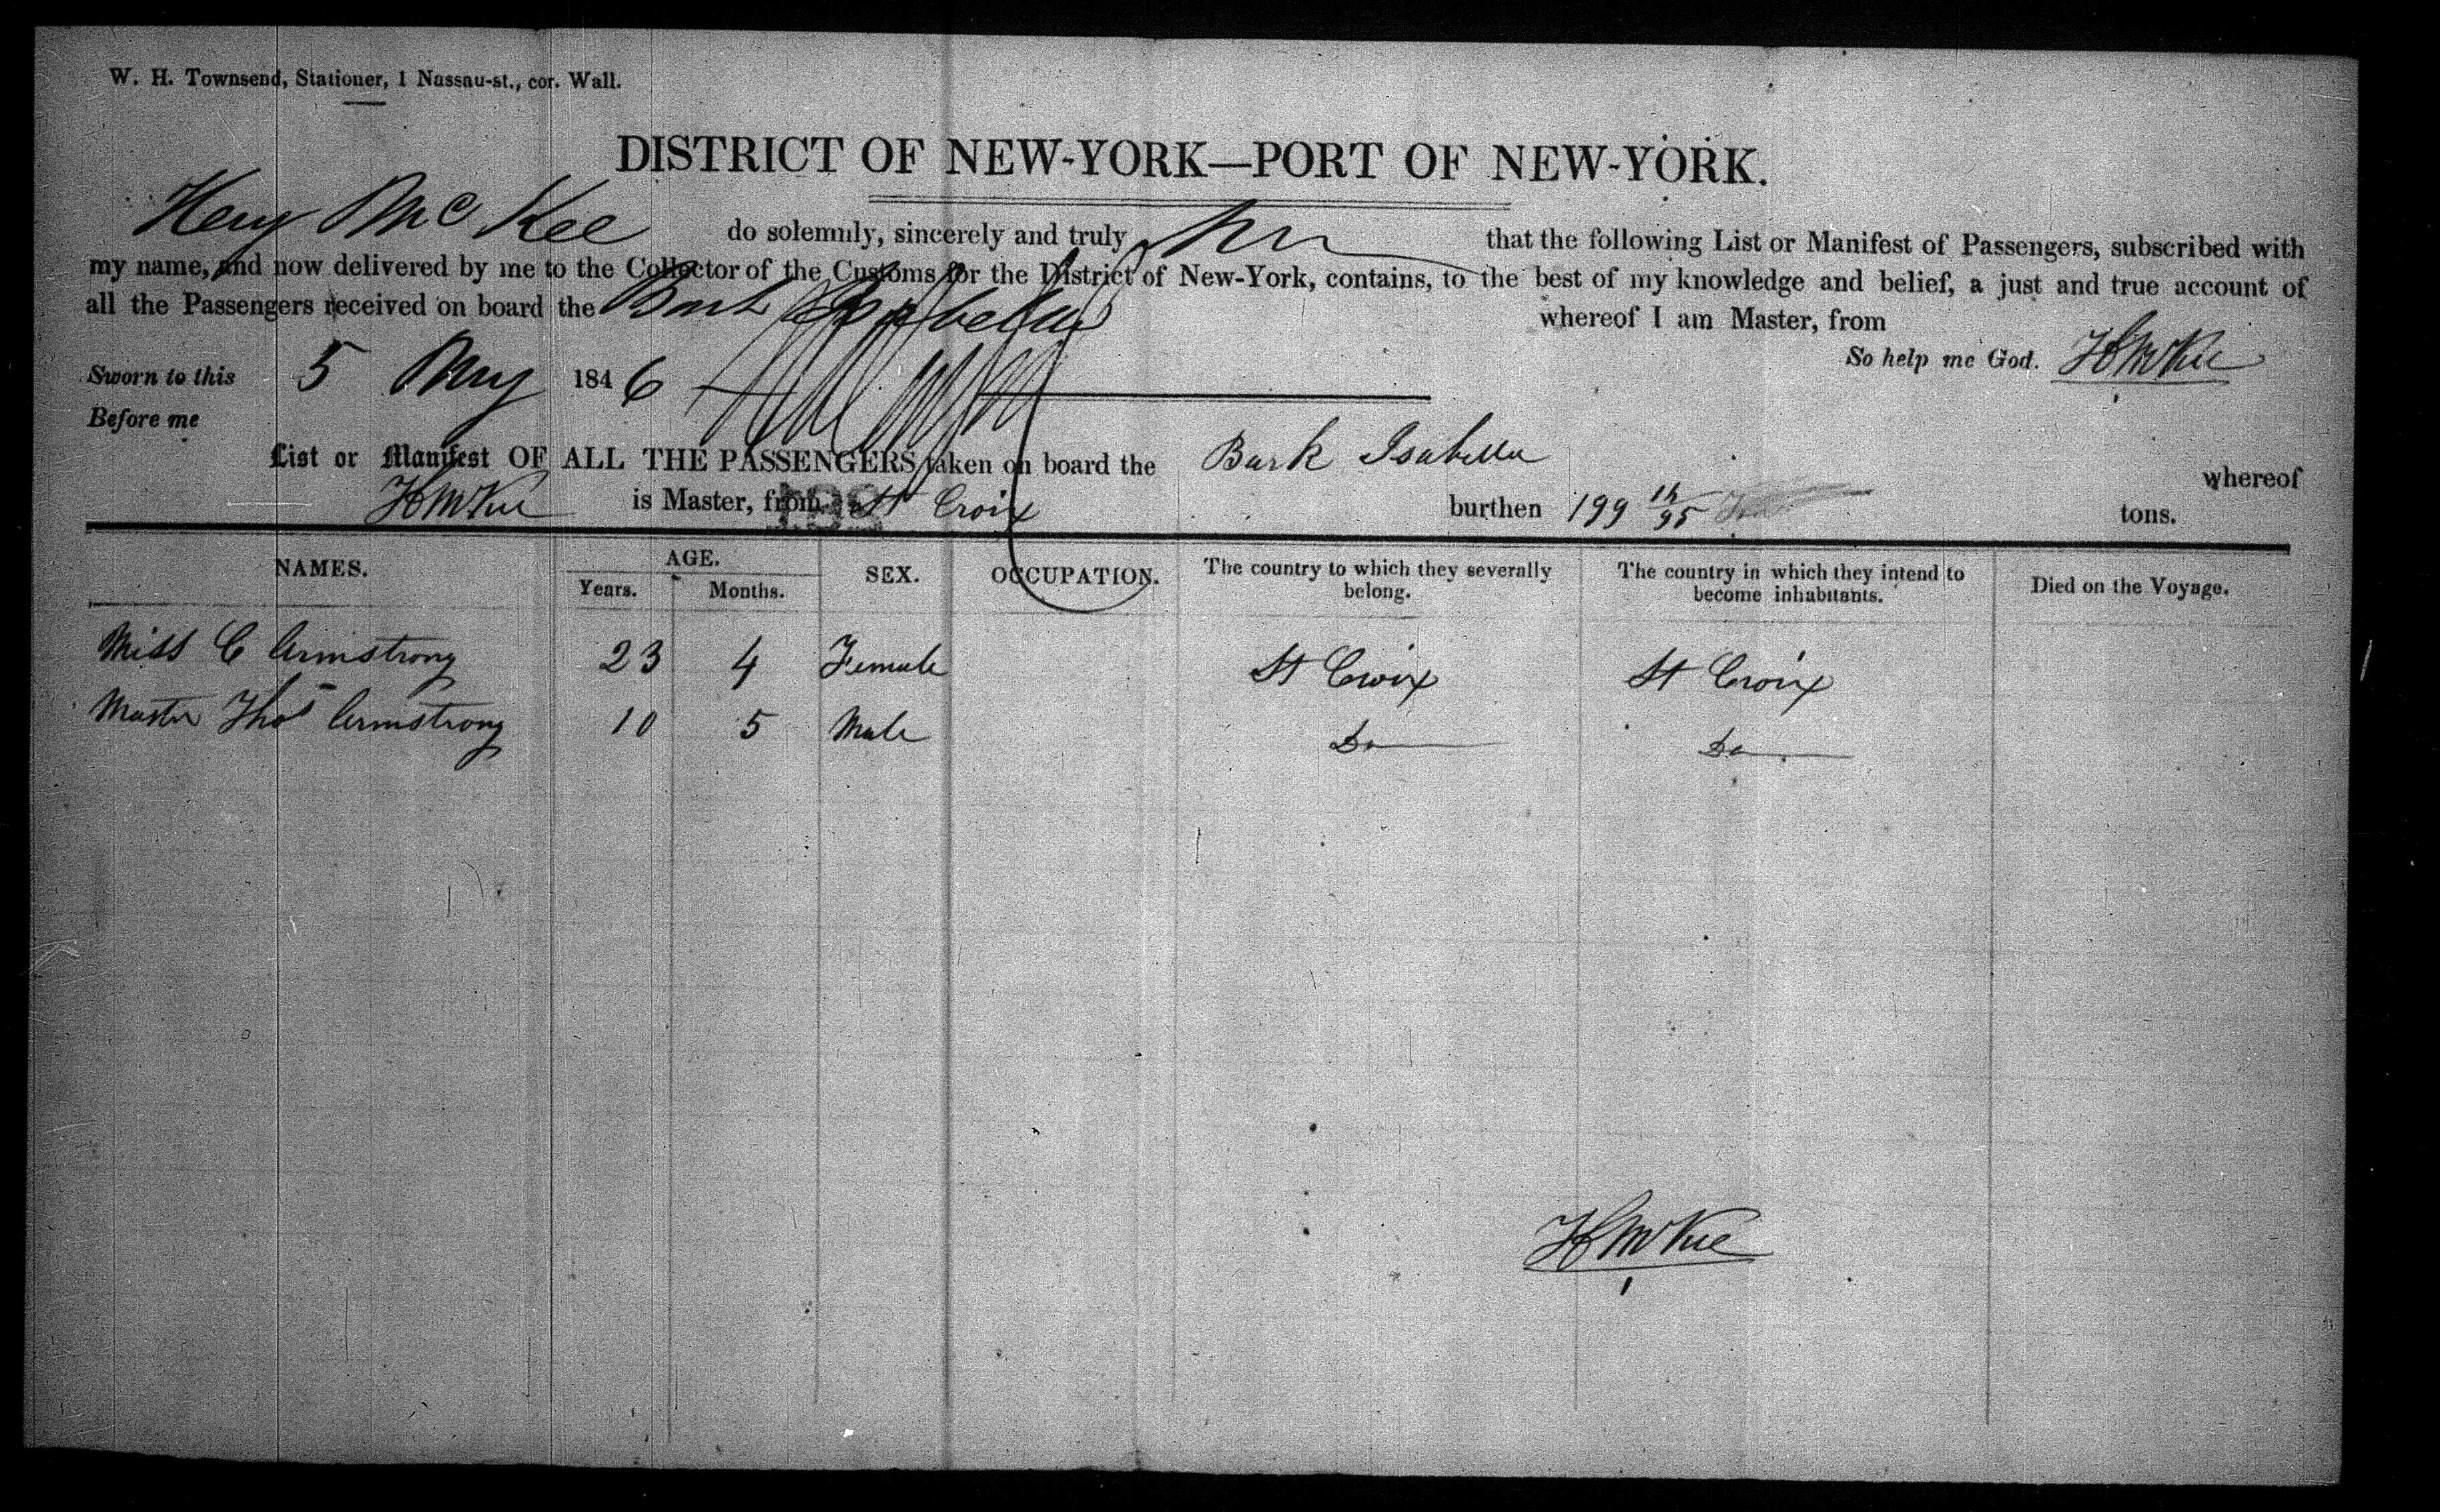 W. H. Townsend, Stationer, 1 Nassau-st., cor. Wall.
DISTRICT OF NEW-YORK—PORT OF NEW-YORK.
Heny McKee do solemnly, sincerely and truly that the following List or Manifest of Passengers, subscribed with
my name, and now delivered by me to the Collector of the Customs for the District of New-York, contains, to the best of my knowledge and belief, a just and true account of
all the Passengers received on board the Bark Isabella whereof I am Master, from
So help me God. H McKee
Sworn to this 5 May 1846
Before me
List or Manifest OF ALL THE PASSENGERS taken on board the Bark Isabella whereof
H McKee is Master, from St Croix burthen 199 /95 tons.
NAMES. AGE. SEX. OCCUPATION. The country to which they severally belong. The country in which they intend to become inhabitants. Died on the Voyage.
Years. Months.
Miss C Armstrong 23 4 Female St Croix St Croix
Master Thos Armstrong 10 5 Male Do Do
H McKee